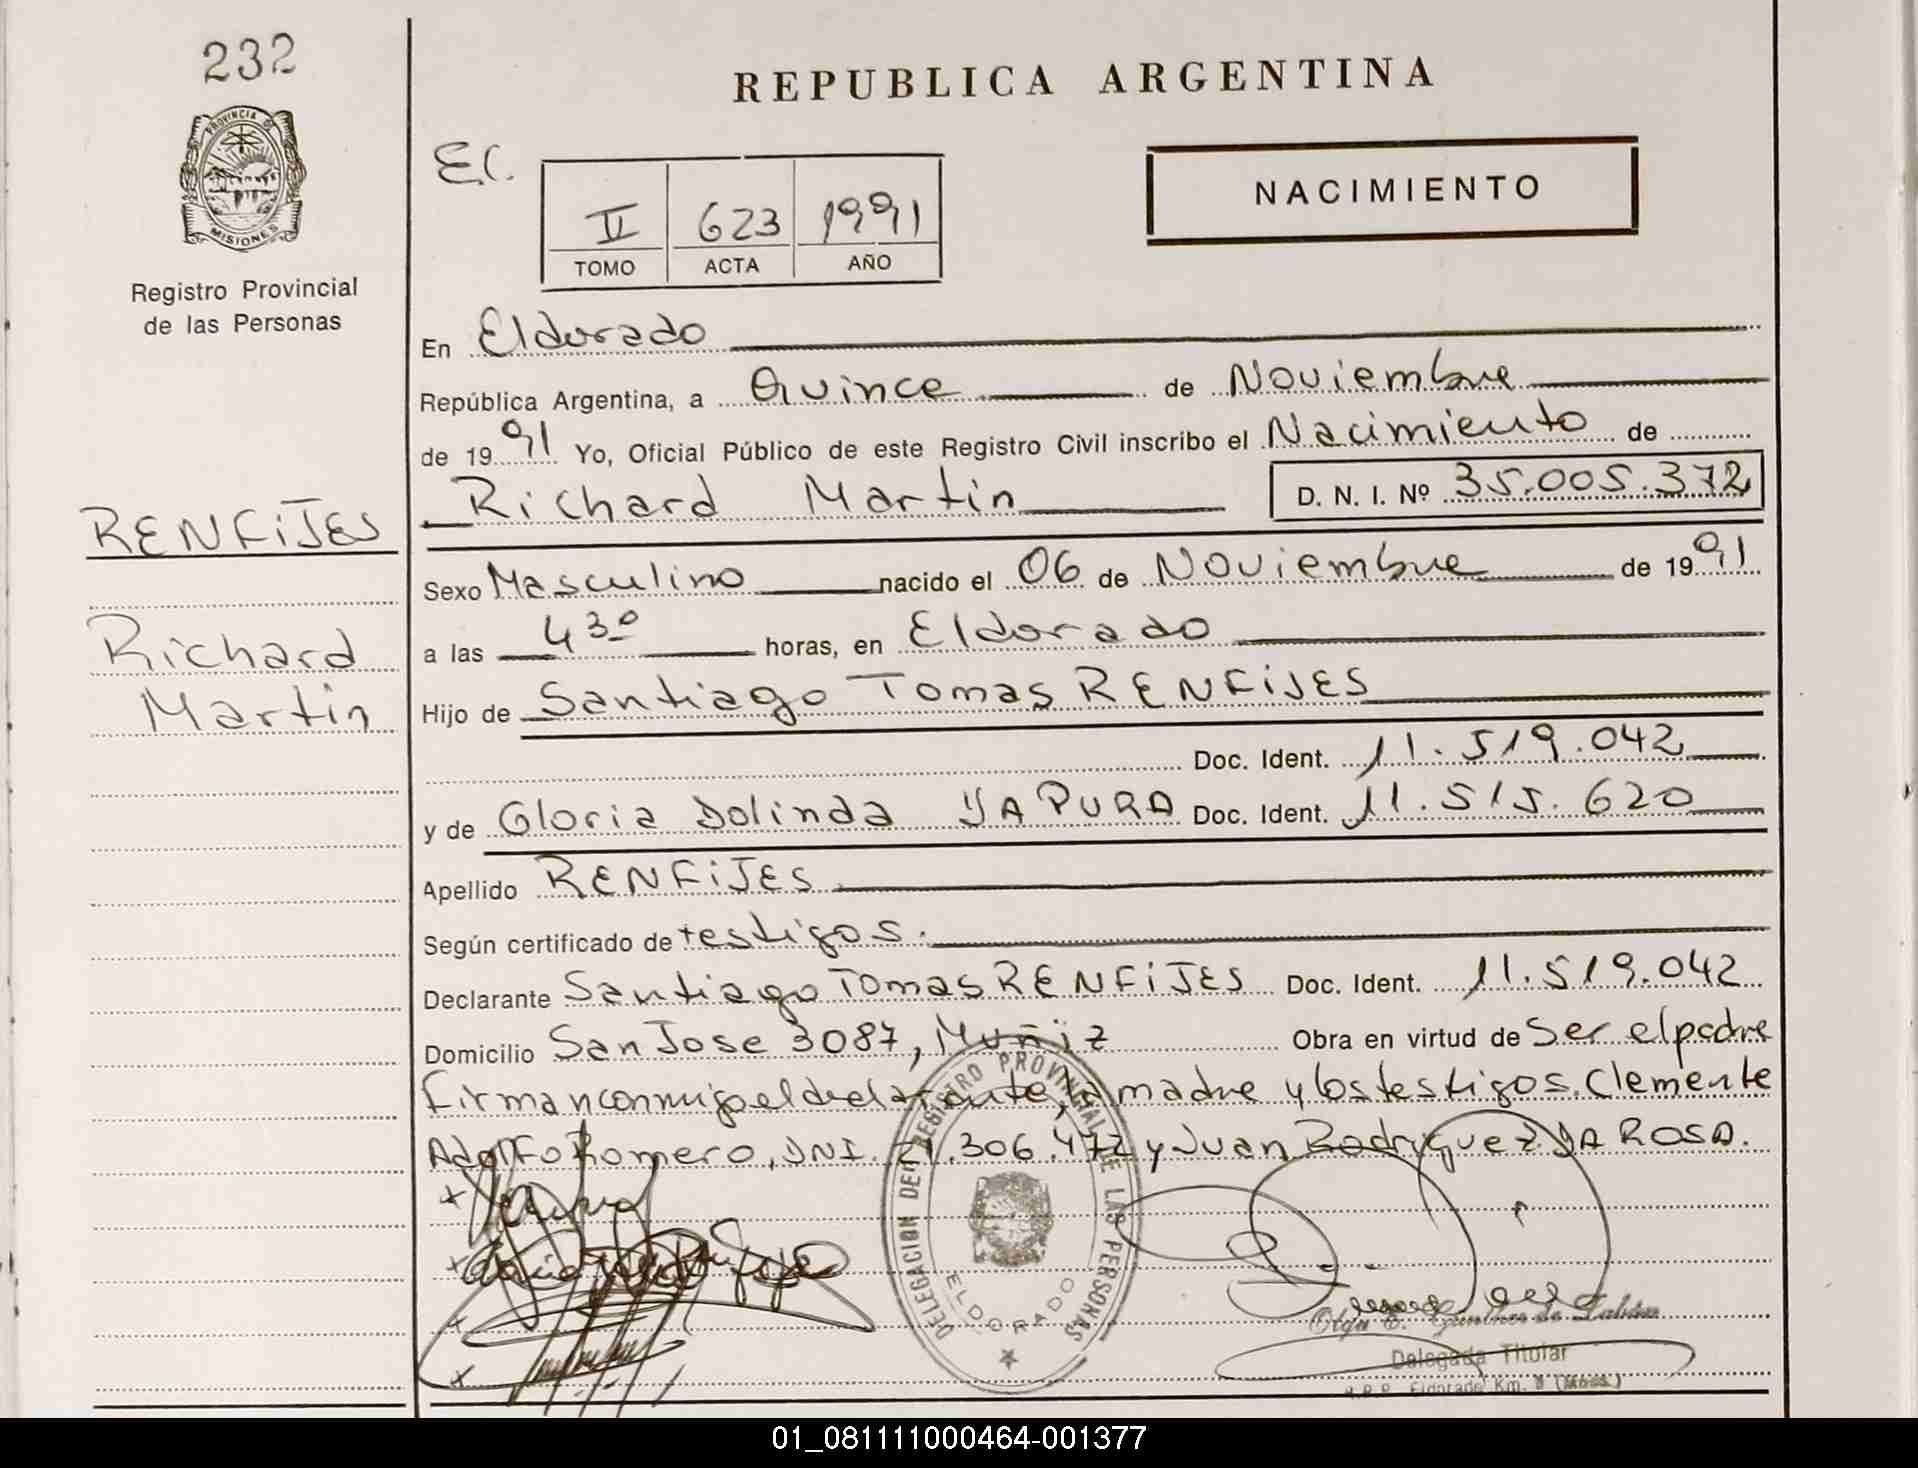 232
PROVINCIA DE
MISIONES
Registro Provincial
de las Personas
RENFIJES
Richard
Martin
REPUBLICA ARGENTINA
E.C.
II 623 1991
TOMO ACTA AÑO
NACIMIENTO
En Eldorado
República Argentina, a Quince de Noviembre
de 1991 Yo, Oficial Público de este Registro Civil inscribo el Nacimiento de
Richard Martin D. N. I. Nº 35.005.372
Sexo Masculino nacido el 06 de Noviembre de 1991
a las 4 30 horas, en Eldorado
Hijo de Santiago Tomas RENFIJES
Doc. Ident. 11.519.042
y de Gloria Dolinda YAPURA Doc. Ident. 11.515.620
Apellido RENFIJES
Según certificado de testigos.
Declarante Santiago Tomas RENFIJES Doc. Ident. 11.519.042
Domicilio San Jose 3087, Muñiz Obra en virtud de Ser el padre
firman conmigo el declarante, la madre y los testigos. Clemente
Adolfo Romero, DNI. 21.306.472 y Juan Rodriguez DA ROSA.
DELEGACION DEL REGISTRO PROVINCIAL DE LAS PERSONAS
ELDORADO
Olga E. Gunther de
Delegada Titular
Eldorado Km. 9 (Mnes.)
01_081111000464-001377